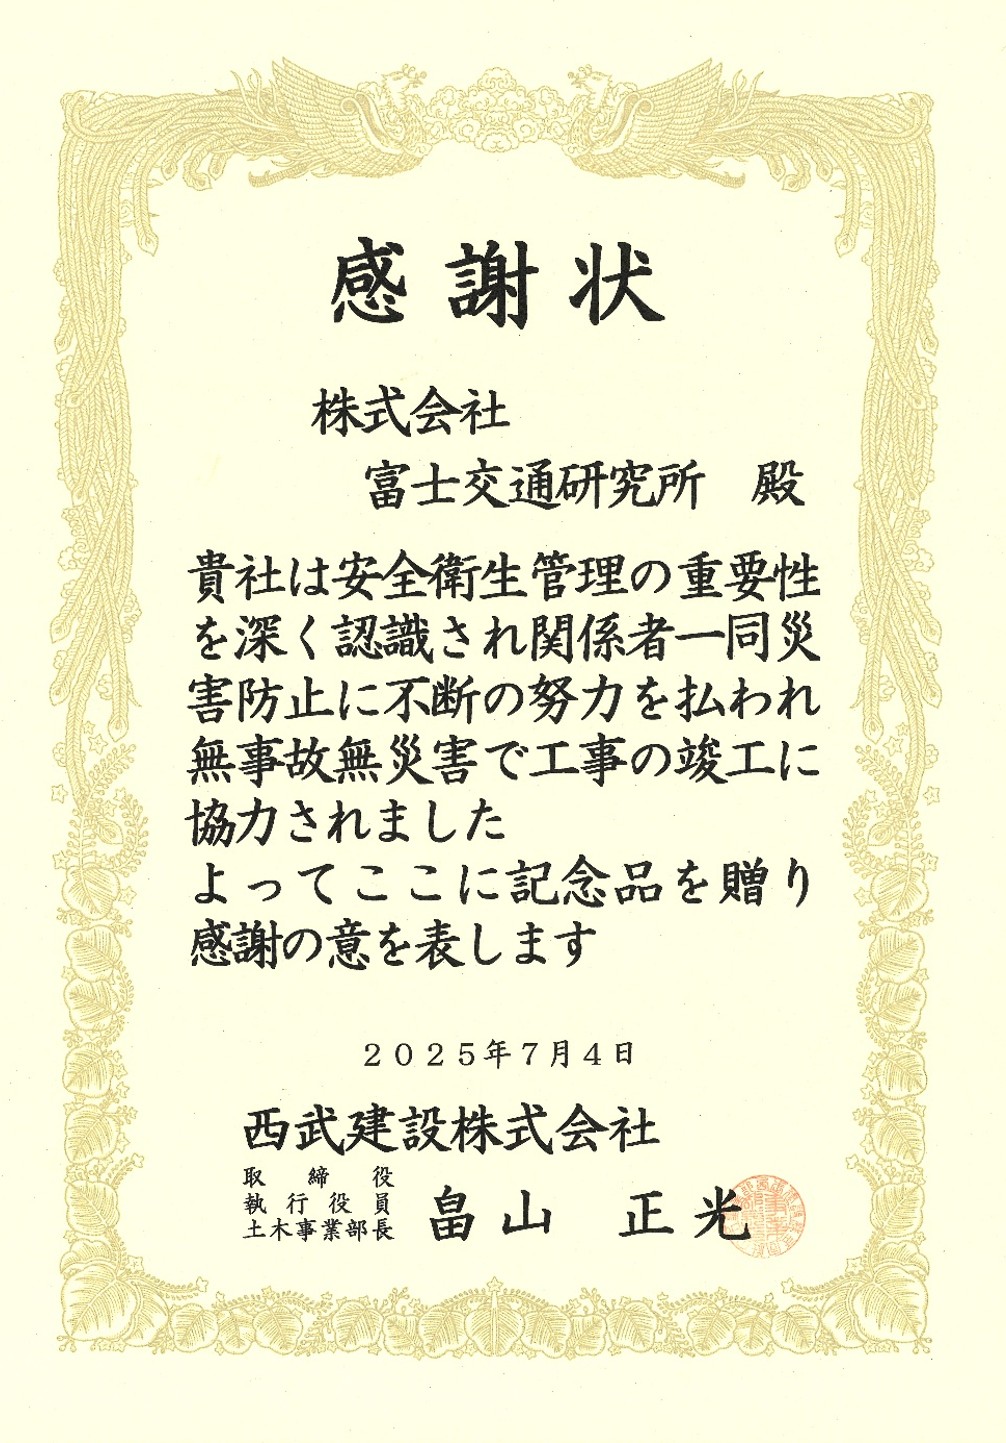 感謝状
株式会社
富士交通研究所 殿
貴社は安全衛生管理の重要性
を深く認識され関係者一同災
害防止に不断の努力を払われ
無事故無災害で工事の竣工に
協力されました
よってここに記念品を贈り
感謝の意を表します
2025年7月4日
西武建設株式会社
取締役
執行役員
土木事業部長
畠山 正光